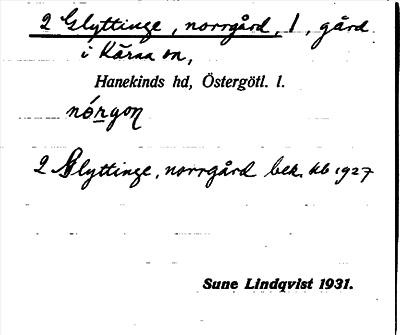 2 Glyttinge, norrgård, 1, gård
i Kärna sn,
Hanekinds hd, Östergötl. l.
nórgon
2 Glyttinge, norrgård bek. kb 1927
Sune Lindqvist 1931.